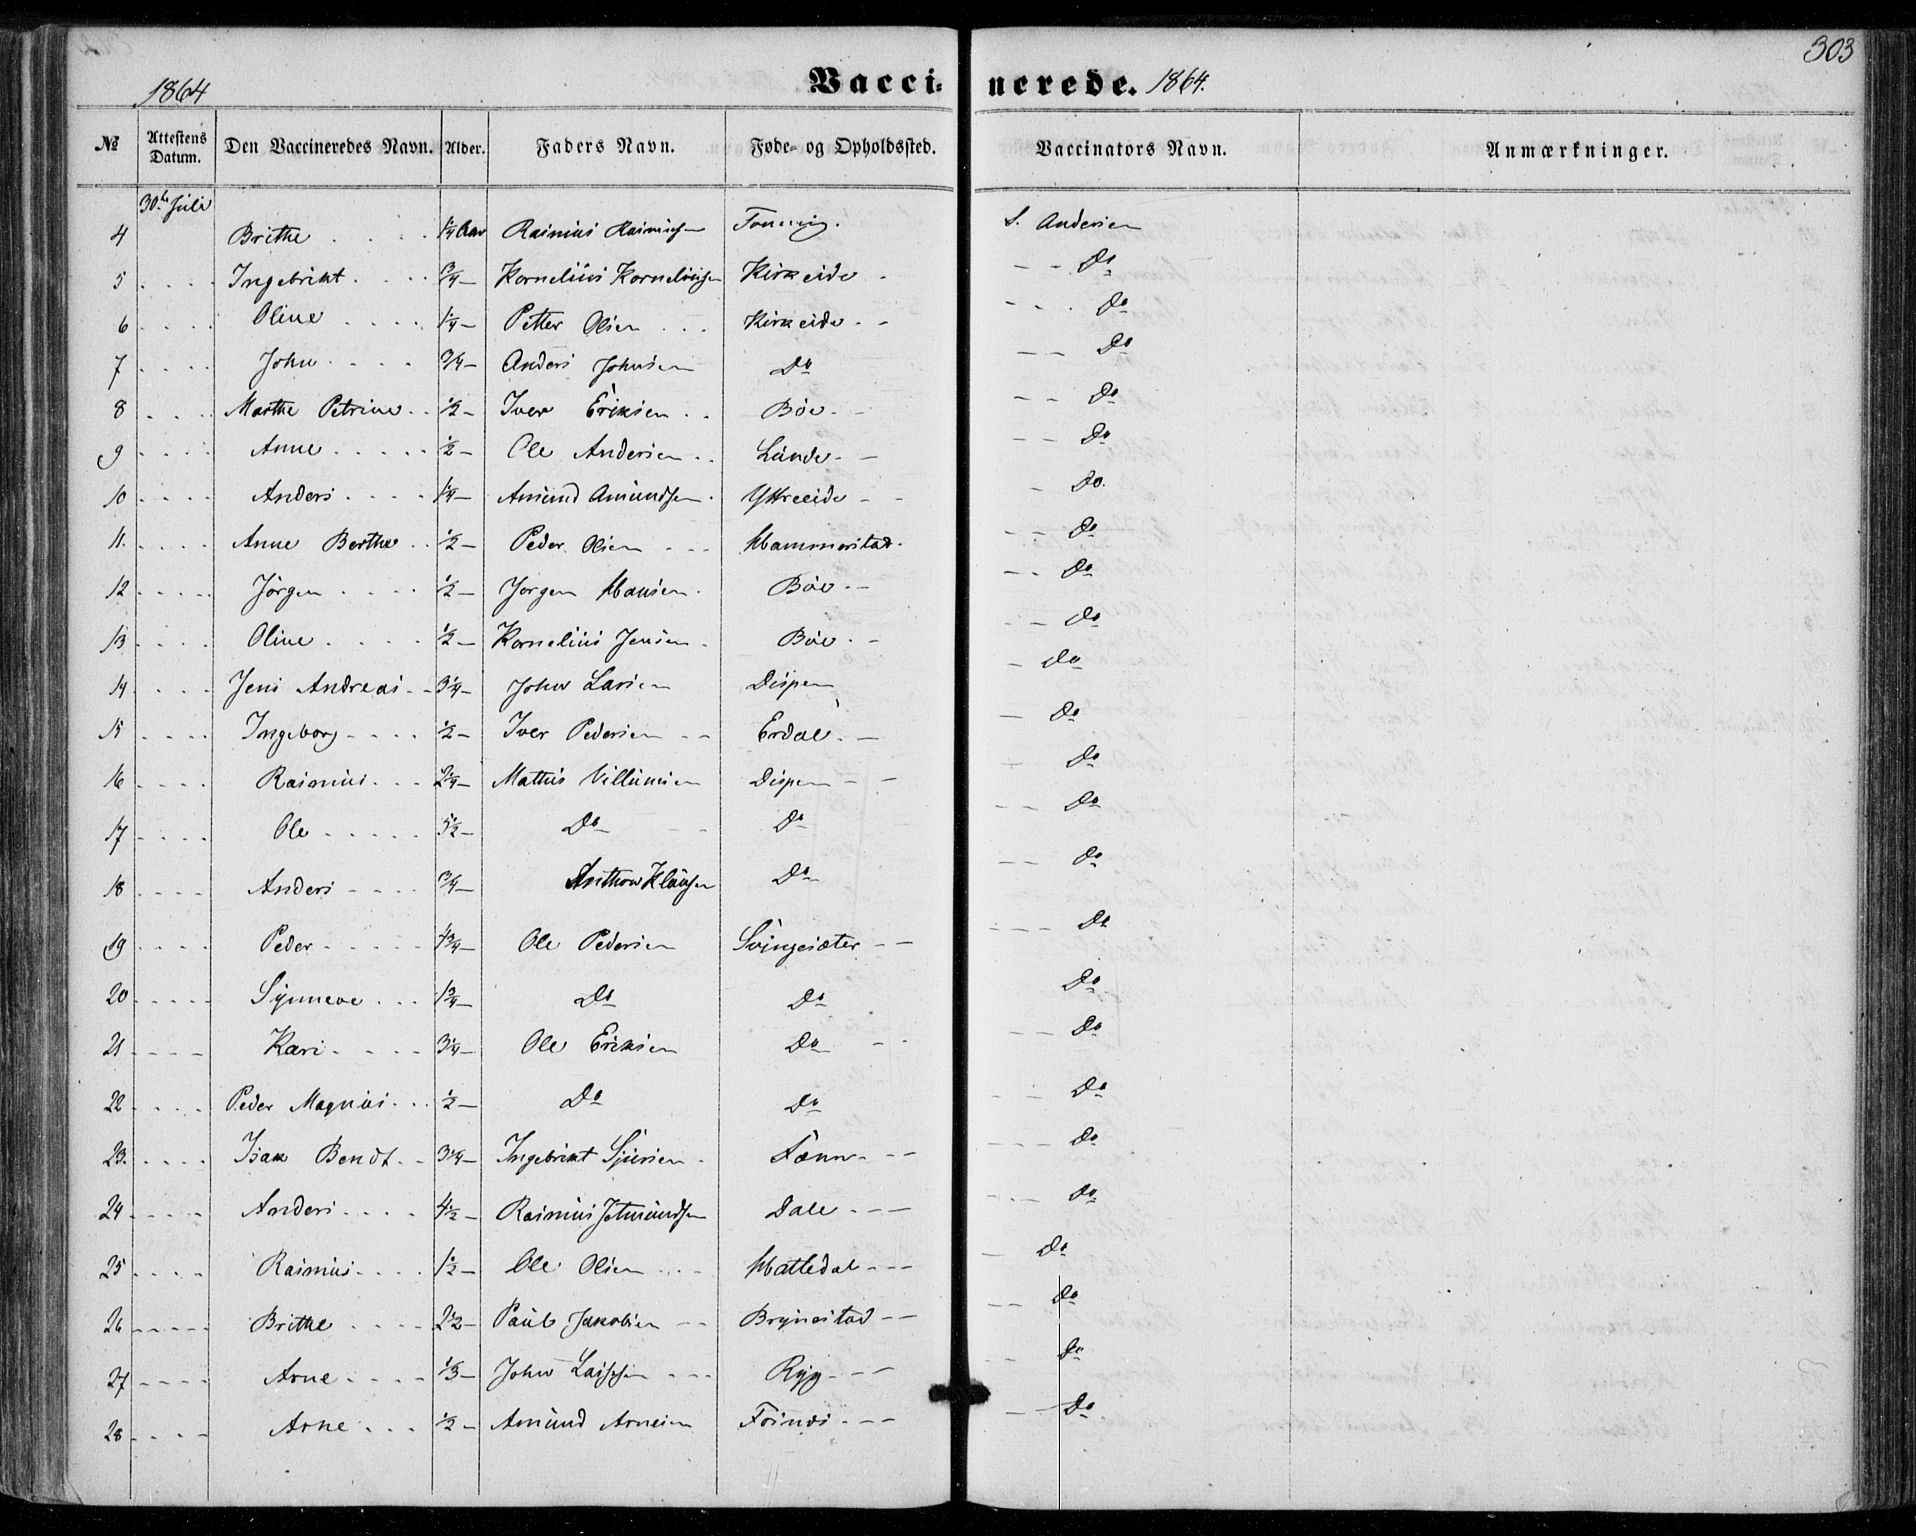 303
1864 Vaccinerede. 1864.
№ Attestens Datum. Den Vaccineredes Navn. Alder. Faders Navn. Føde- og Opholdssted. Vaccinators Navn. Anmærkninger.
30te Juli
4 Brithe 1/4 Aar Rasmus Rasmusen Tonning. S. Andersen
5 Ingebrikt 3/4 Kornelius Korneliusen Kirkeide Do
6 Oline 1/4 Petter Olsen Kirkeide Do
7 John 3/4 Anders Johnsen Do Do
8 Marthe Petrine 1/2 Iver Eriksen Böe Do
9 Anne 1/2 Ole Andersen Lunde Do
10 Anders 1/4 Amund Amundsen Yttreeide Do.
11. Anne Berthe 1/2 Peder Olsen Hammerstad Do
12 Jörgen 1/2 Jörgen Hansen Böe Do
13 Oline 1/2 Kornelius Jensen Böe Do
14 Jens Andreas 3 1/4 John Larsen Dispen Do
15 Ingeborg 1/2 Iver Pedersen Erdal Do
16 Rasmus 2 1/4 Mathis Villumsen Dispen Do
17 Ole 5 1/2 Do Do Do
18 Anders 3/4 Anthon Klausen Do Do
19 Peder 4 3/4 Ole Pedersen Svingesæter Do
20 Synneve 1 3/4 Do Do Do
21 Kari 3 1/4 Ole Eriksen Do Do
22 Peder Magnus 1/2 Do Do Do
23. Isak Bendt 3 1/4 Ingebrikt Sjursen Do
24 Anders 4 1/2 Rasmus Jetmundsen Dale Do
25 Rasmus 1 1/2 Ole Olsen Hattedal Do
26 Brithe 2 1/2 Paul Jakobsen Brynestad Do
27 Arne 1/3 John Ryg Do
28 Arne 1/2 Amund Arnesen Do